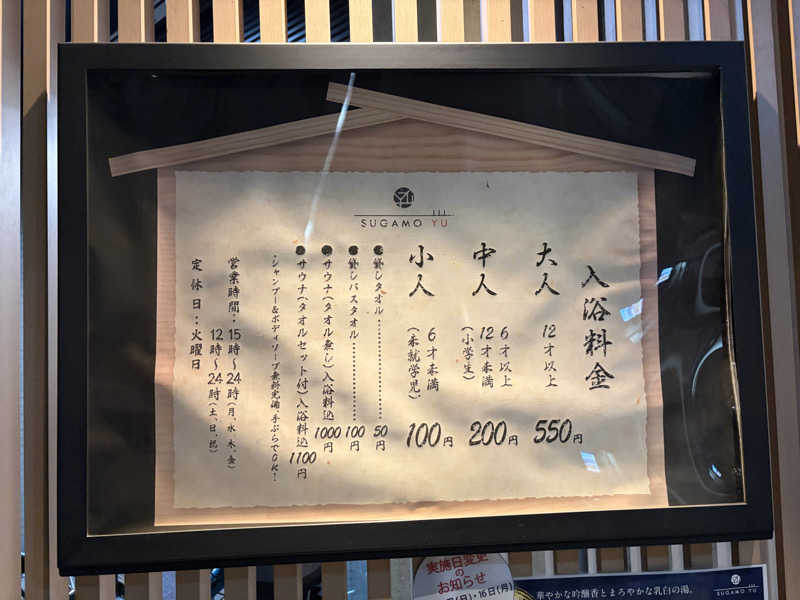 SUGAMO YU
入浴料金
大人 12才以上 550円
中人 6才以上
12才未満
(小学生) 200円
小人 6才未満
(未就学児) 100円
●貸しタオル………… 50円
●貸しバスタオル………… 100円
●サウナ(タオル無し)入浴料込 1000円
●サウナ(タオルセット付)入浴料込 1100円
・シャンプー&ボディソープ無料完備、手ぶらでOK!
営業時間:15時〜24時(月、水、木、金)
12時〜24時(土、日、祝)
定休日:火曜日
実施日変更
の
お知らせ
(日)・16日(月)
華やかな吟醸香とまろやかな乳白の湯。
SUGAMO YU